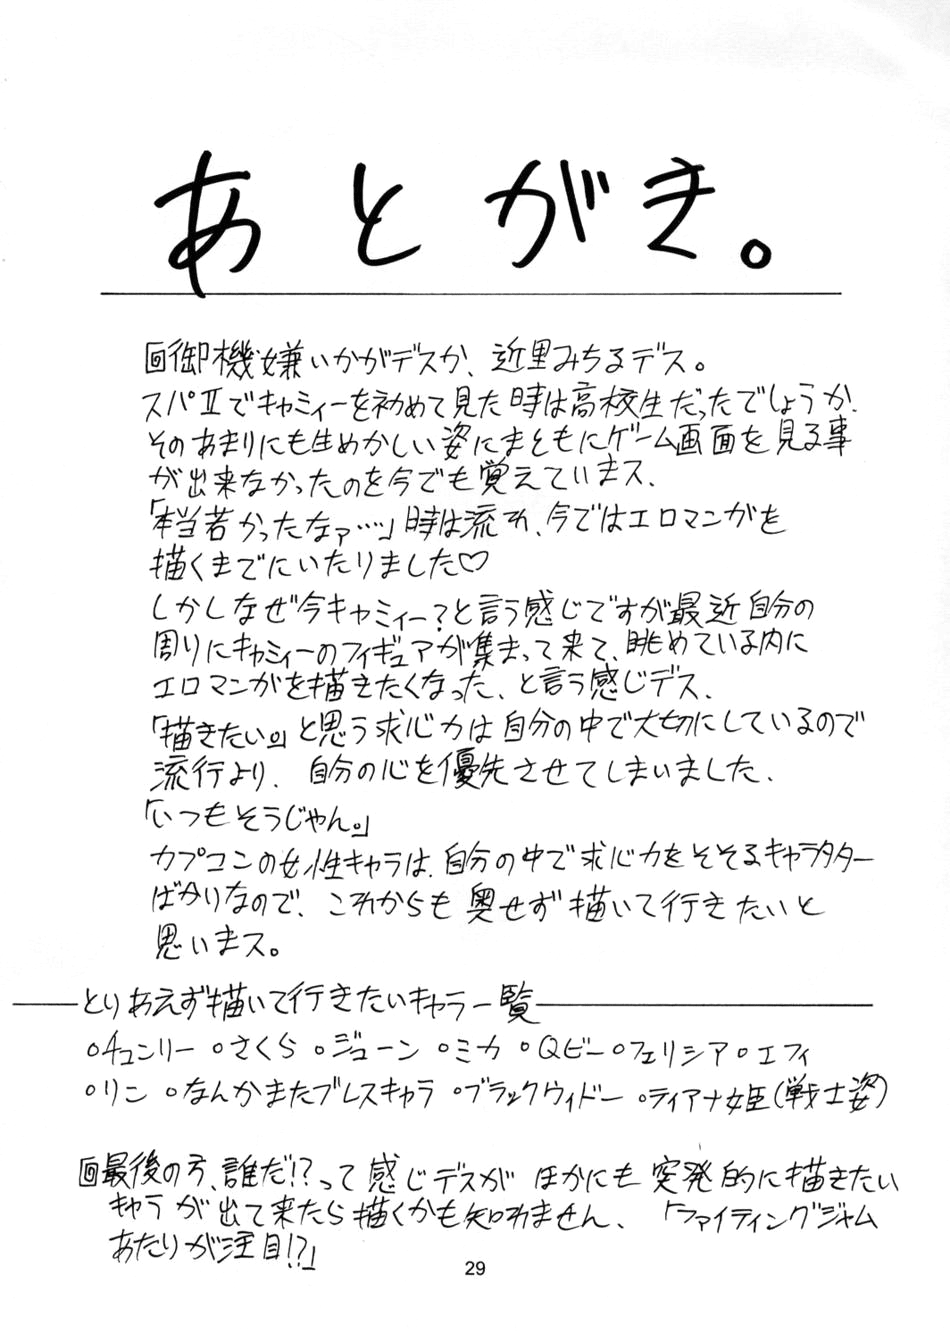 あとがき。
回御機嫌いかがデスか、近里みちるデス。
スパⅡでキャミィーを初めて見た時は高校生だったでしょうか、
そのあまりにも生めかしい姿にまともにゲーム画面を見る事
が出来なかったのを今でも覚えていまス、
「本当若かったなァ……」時は流れ、今ではエロマンガを
描くまでにいたりました♡
しかしなぜ今キャミィー?と言う感じですが最近自分の
周りにキャミィーのフィギュアが集まって来て、眺めている内に
エロマンガを描きたくなった、と言う感じデス、
「描きたい。」と思う求心力は自分の中で大切にしているので
流行より、自分の心を優先させてしまいました、
「いつもそうじゃん。」
カプコンの女性キャラは、自分の中で求心力をそそるキャラクター
ばかりなので、これからも臭せず描いて行きたいと
思いまス。
とりあえず描いて行きたいキャラ一覧
○チュンリー ○さくら ○ジューン ○ミカ ○Qビー ○フェリシア ○エフィ
○リン ○なんかまたブレスキャラ ○ブラックウィドー ○ティアナ姫(戦士姿)
回最後の方、誰だ!?って感じデスが ほかにも突発的に描きたい
キャラが出て来たら描くかも知れません、「ファイティングジャム
あたりが注目!?」
29